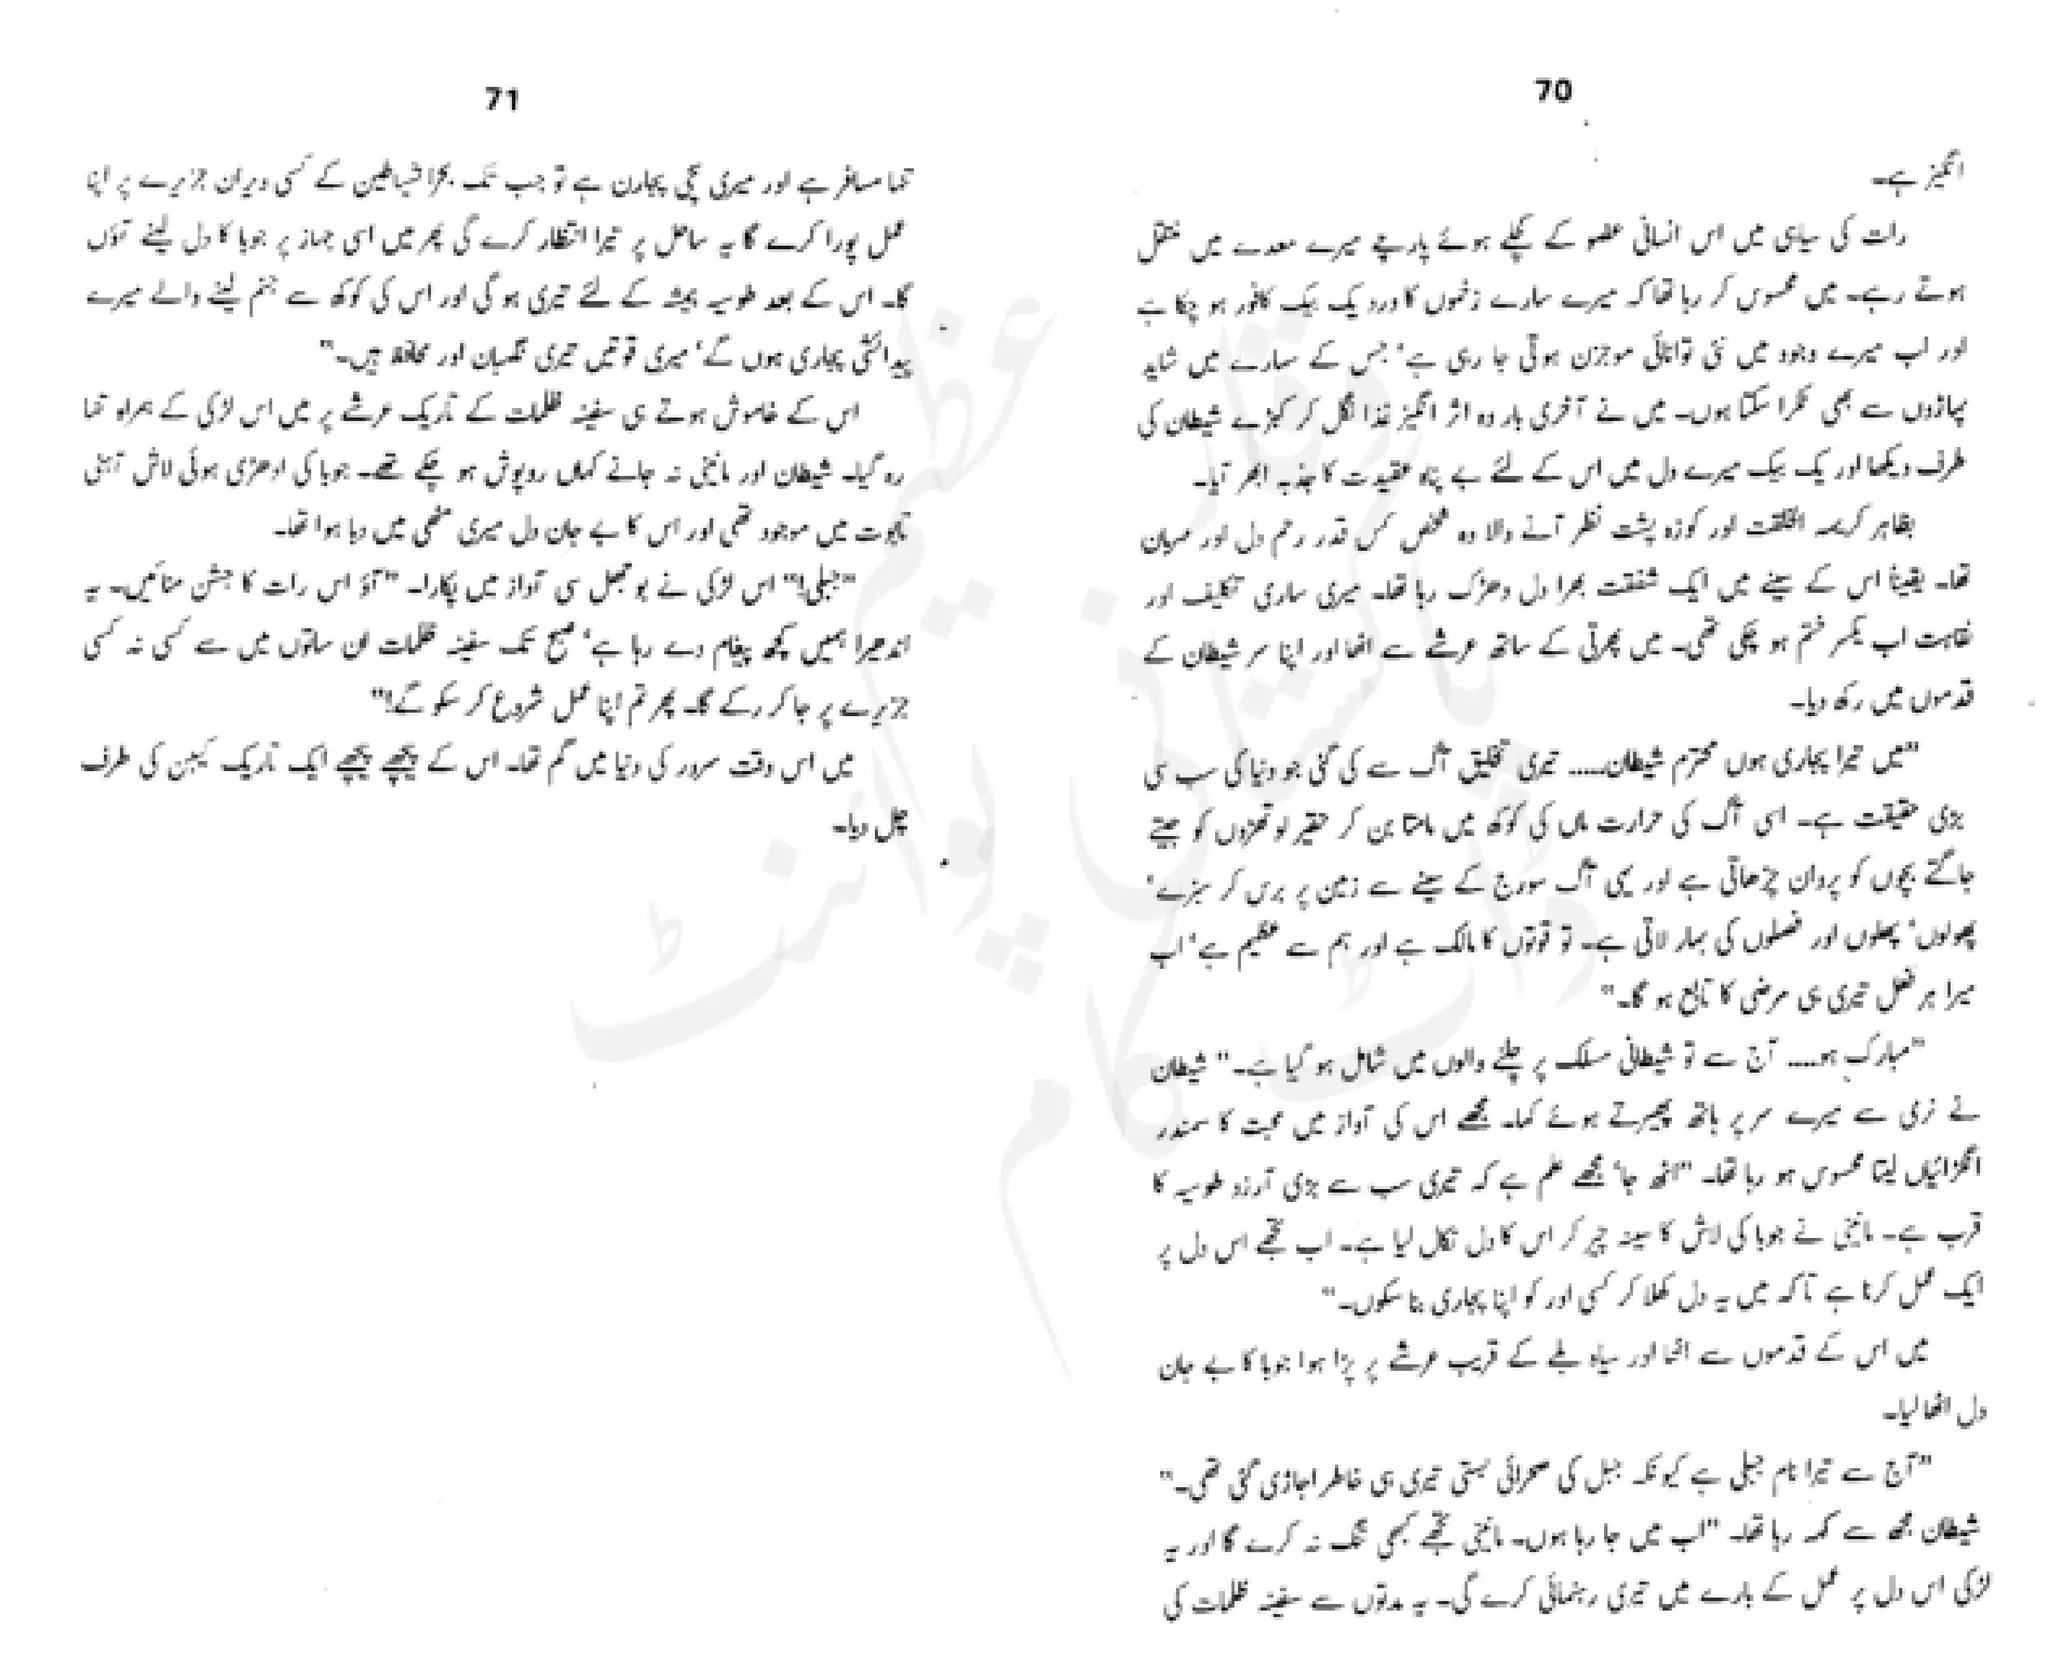 70
انگیز ہے۔
رات کی سیاہی میں اس انسانی عضو کے کچلے ہوئے پارچے میرے معدے میں منتقل
ہوتے رہے۔ میں محسوس کر رہا تھا کہ میرے سارے زخموں کا درد یک بیک کافور ہو چکا ہے
اور اب میرے وجود میں نئی توانائی موجزن ہوتی جا رہی ہے‘ جس کے سہارے میں شاید
پہاڑوں سے بھی ٹکرا سکتا ہوں۔ میں نے آخری بار وہ اثر انگیز غذا نگل کر کبڑے شیطان کی
طرف دیکھا اور یک بیک میرے دل میں اس کے لئے بے پناہ عقیدت کا جذبہ ابھر آیا۔
بظاہر کریہہ الخلقت اور کوزہ پشت نظر آنے والا وہ شخص کس قدر رحم دل اور مہربان
تھا۔ یقیناً اس کے سینے میں ایک شفقت بھرا دل دھڑک رہا تھا۔ میری ساری تکلیف اور
نقاہت اب یکسر ختم ہو چکی تھی۔ میں پھرتی کے ساتھ عرشے سے اٹھا اور اپنا سر شیطان کے
قدموں میں رکھ دیا۔
"میں تیرا پجاری ہوں محترم شیطان..... تیری تخلیق آگ سے کی گئی جو دنیا کی سب سی
بڑی حقیقت ہے۔ اسی آگ کی حرارت ماں کی کوکھ میں مامتا بن کر حقیر لوتھڑوں کو جیتے
جاگتے بچوں کو پروان چڑھاتی ہے اور یہی آگ سورج کے سینے سے زمین پر برس کر سبزے‘
پھولوں‘ پھلوں اور فصلوں کی بہار لاتی ہے۔ تو قوتوں کا مالک ہے اور ہم سے عظیم ہے‘ اب
میرا ہر فعل تیری ہی مرضی کا تابع ہو گا۔"
"مبارک ہو.... آج سے تو شیطانی مسلک پر چلنے والوں میں شامل ہو گیا ہے۔" شیطان
نے نرمی سے میرے سر پر ہاتھ پھیرتے ہوئے کہا۔ مجھے اس کی آواز میں محبت کا سمندر
انگڑائیاں لیتا محسوس ہو رہا تھا۔ "اٹھ جا‘ مجھے علم ہے کہ تیری سب سے بڑی آرزو طوبیہ کا
قرب ہے۔ مانینی نے جوبا کی لاش کا سینہ چیر کر اس کا دل نکال لیا ہے۔ اب تجھے اس دل پر
ایک عمل کرنا ہے تاکہ میں یہ دل کھلا کر کسی اور کو اپنا پجاری بنا سکوں۔"
میں اس کے قدموں سے اٹھا اور سیاہ بلے کے قریب عرشے پر پڑا ہوا جوبا کا بے جان
دل اٹھا لیا۔
"آج سے تیرا نام جبلی ہے کیونکہ جبل کی صحرائی بستی تیری ہی خاطر اجاڑی گئی تھی۔"
شیطان مجھ سے کہہ رہا تھا۔ "اب میں جا رہا ہوں۔ مانینی تجھے کبھی تنگ نہ کرے گا اور یہ
لڑکی اس دل پر عمل کے بارے میں تیری رہنمائی کرے گی۔ یہ مدتوں سے سفینہ ظلمات کی
71
تنہا مسافر ہے اور میری سچی پجارن ہے تو جب تک بحرالشیاطین کے کسی ویران جزیرے پر اپنا
عمل پورا کرے گا یہ ساحل پر تیرا انتظار کرے گی پھر میں اسی جہاز پر جوبا کا دل لینے آؤں
گا۔ اس کے بعد طوبیہ ہمیشہ کے لئے تیری ہو گی اور اس کی کوکھ سے جنم لینے والے میرے
پیدائشی پجاری ہوں گے‘ میری قوتیں تیری نگہبان اور محافظ ہیں۔"
اس کے خاموش ہوتے ہی سفینہ ظلمات کے تاریک عرشے پر میں اس لڑکی کے ہمراہ تنہا
رہ گیا۔ شیطان اور مانینی نہ جانے کہاں روپوش ہو چکے تھے۔ جوبا کی ادھڑی ہوئی لاش آہنی
تابوت میں موجود تھی اور اس کا بے جان دل میری مٹھی میں دبا ہوا تھا۔
"جبلی!" اس لڑکی نے بوجھل سی آواز میں پکارا۔ "آؤ اس رات کا جشن منائیں۔ یہ
اندھیرا ہمیں کچھ پیغام دے رہا ہے‘ صبح تک سفینہ ظلمات ان ساتوں میں سے کسی نہ کسی
جزیرے پر جا کر رکے گا۔ پھر تم اپنا عمل شروع کر سکو گے!"
میں اس وقت سرور کی دنیا میں گم تھا۔ اس کے پیچھے پیچھے ایک تاریک کیبن کی طرف
چل دیا۔
عظیم
وقار
پاکستانی پوائنٹ
ڈاٹ کام